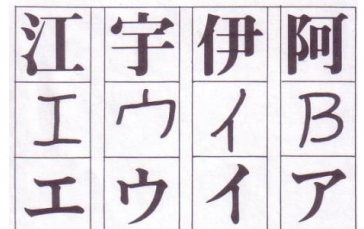 江 宇 伊 阿
エ ウ イ B
エ ウ イ ア